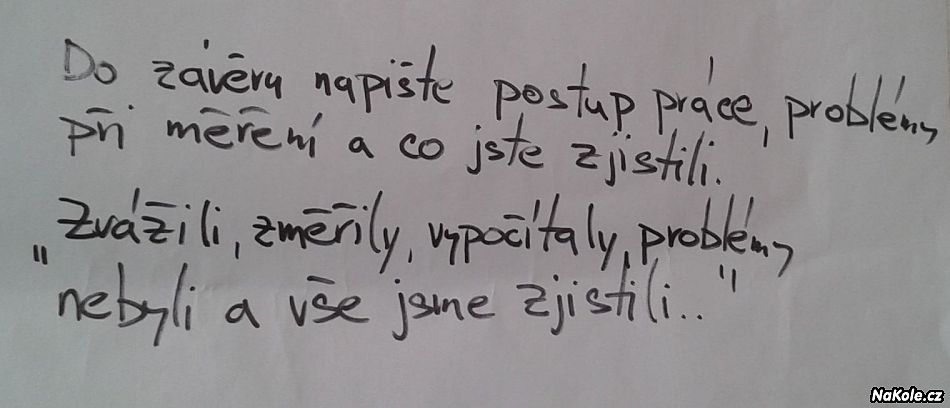 Do závěru napište postup práce, problémy
při měření a co jste zjistili.
„Zvážili, změřily, vypočítaly, problémy
nebyli a vše jsme zjistili.."
NaKole.cz